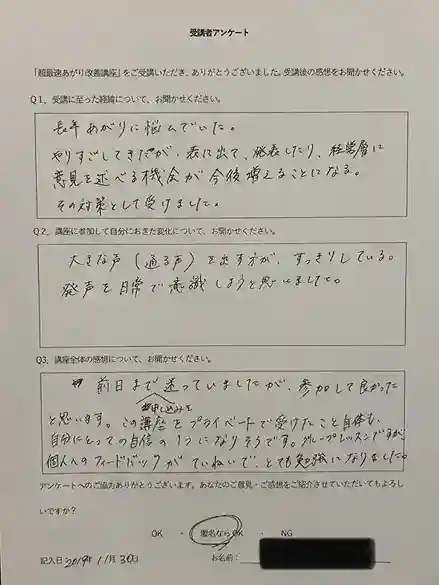 受講者アンケート
「超最速あがり改善講座」をご受講いただき、ありがとうございました。受講後の感想をお聞かせください。
Q1、受講に至った経緯について、お聞かせください。
長年あがりに悩んでいた。
やりすごしてきたが、表に出て、発表したり、経営層に
意見を述べる機会が今後増えることになる。
その対策として受けました。
Q2、講座に参加して自分におきた変化について、お聞かせください。
大きな声（通る声）を出す方が、すっきりしている。
発声を日常で意識しようと思いました。
Q3、講座全体の感想について、お聞かせください。
前日まで迷っていましたが、参加して良かった
申し込みを
と思います。この講座をプライベートで受けたこと自体も、
自分にとっての自信の1つになりそうです。グループレッスンですが、
個人へのフィードバックがていねいで、とても勉強になりました。
アンケートへのご協力ありがとうございます。あなたのご意見・ご感想をご紹介させていただいてもよろし
いですか？
OK ・ 匿名ならOK ・ NG
記入日 2019年 11月 30日 お名前：